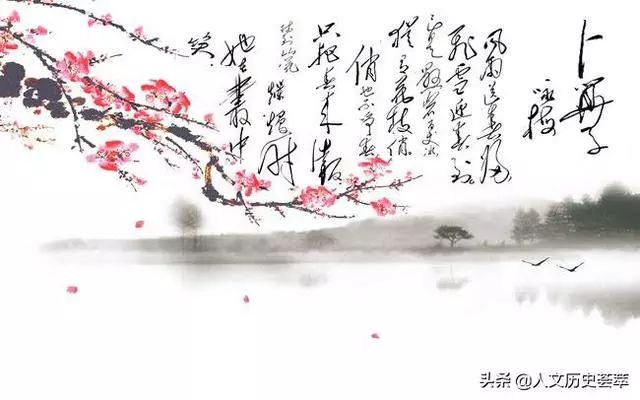 卜算子
咏梅
風雨送春归
飛雪迎春到
已是悬崖百丈冰
犹有花枝俏
俏也不争春
只把春来報
待到山花
爛熳时
她在叢中
笑
头条 @人文历史荟萃